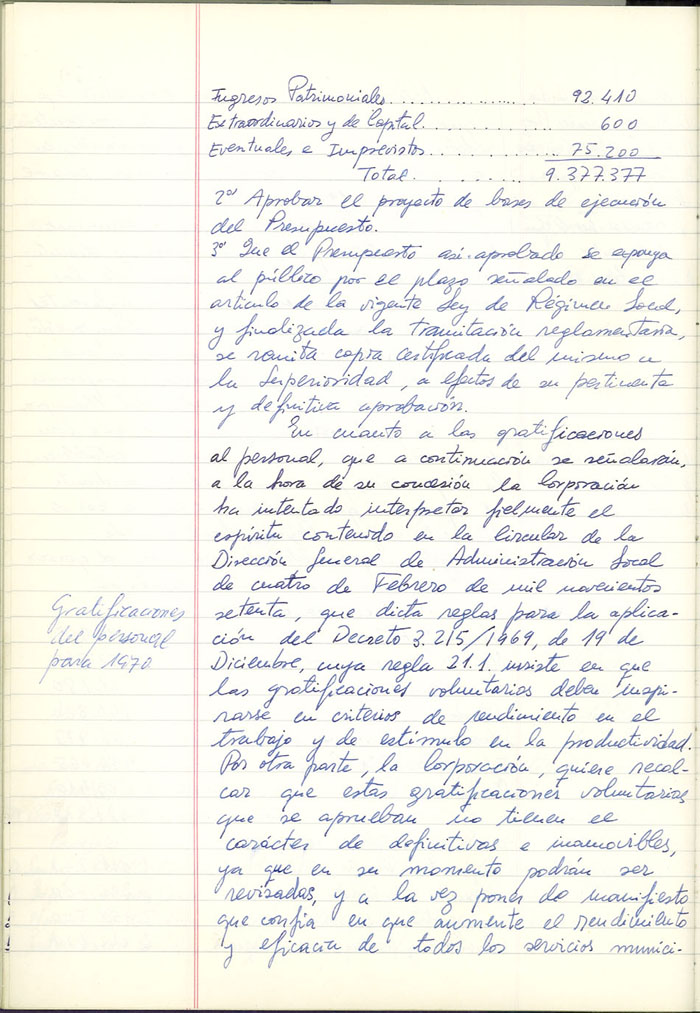 Ingresos Patrimoniales.................. 92.410
Extraordinarios y de Capital............. 600
Eventuales e Imprevistos............. 75.200
Total............. 9.377.377
2º Aprobar el proyecto de bases de ejecución
del Presupuesto.
3º Que el Presupuesto así aprobado se exponga
al público por el plazo señalado en el
artículo de la vigente Ley de Régimen Local,
y finalizada la tramitación reglamentaria,
se remita copia certificada del mismo a
la Superioridad, a efectos de su pertinente
y definitiva aprobación.
En cuanto a las gratificaciones
al personal, que a continuación se señalarán,
a la hora de su concesión la Corporación
ha intentado interpretar fielmente el
espíritu contenido en la Circular de la
Dirección General de Administración Local
de cuatro de Febrero de mil novecientos
setenta, que dicta reglas para la aplica-
Gratificaciones
del personal
para 1970
ción del Decreto 3.215/1969, de 19 de
Diciembre, cuya regla 21.1. insiste en que
las gratificaciones voluntarios deben inspi-
rarse en criterios de rendimiento en el
trabajo y de estímulo en la productividad.
Por otra parte, la Corporación, quiere recal-
car que estas gratificaciones voluntarias
que se aprueban no tienen el
carácter de definitivas e inamovibles,
ya que en su momento podrán ser
revisadas, y a la vez pones de manifiesto
que confía en que aumente el rendimiento
y eficacia de todos los servicios munici-